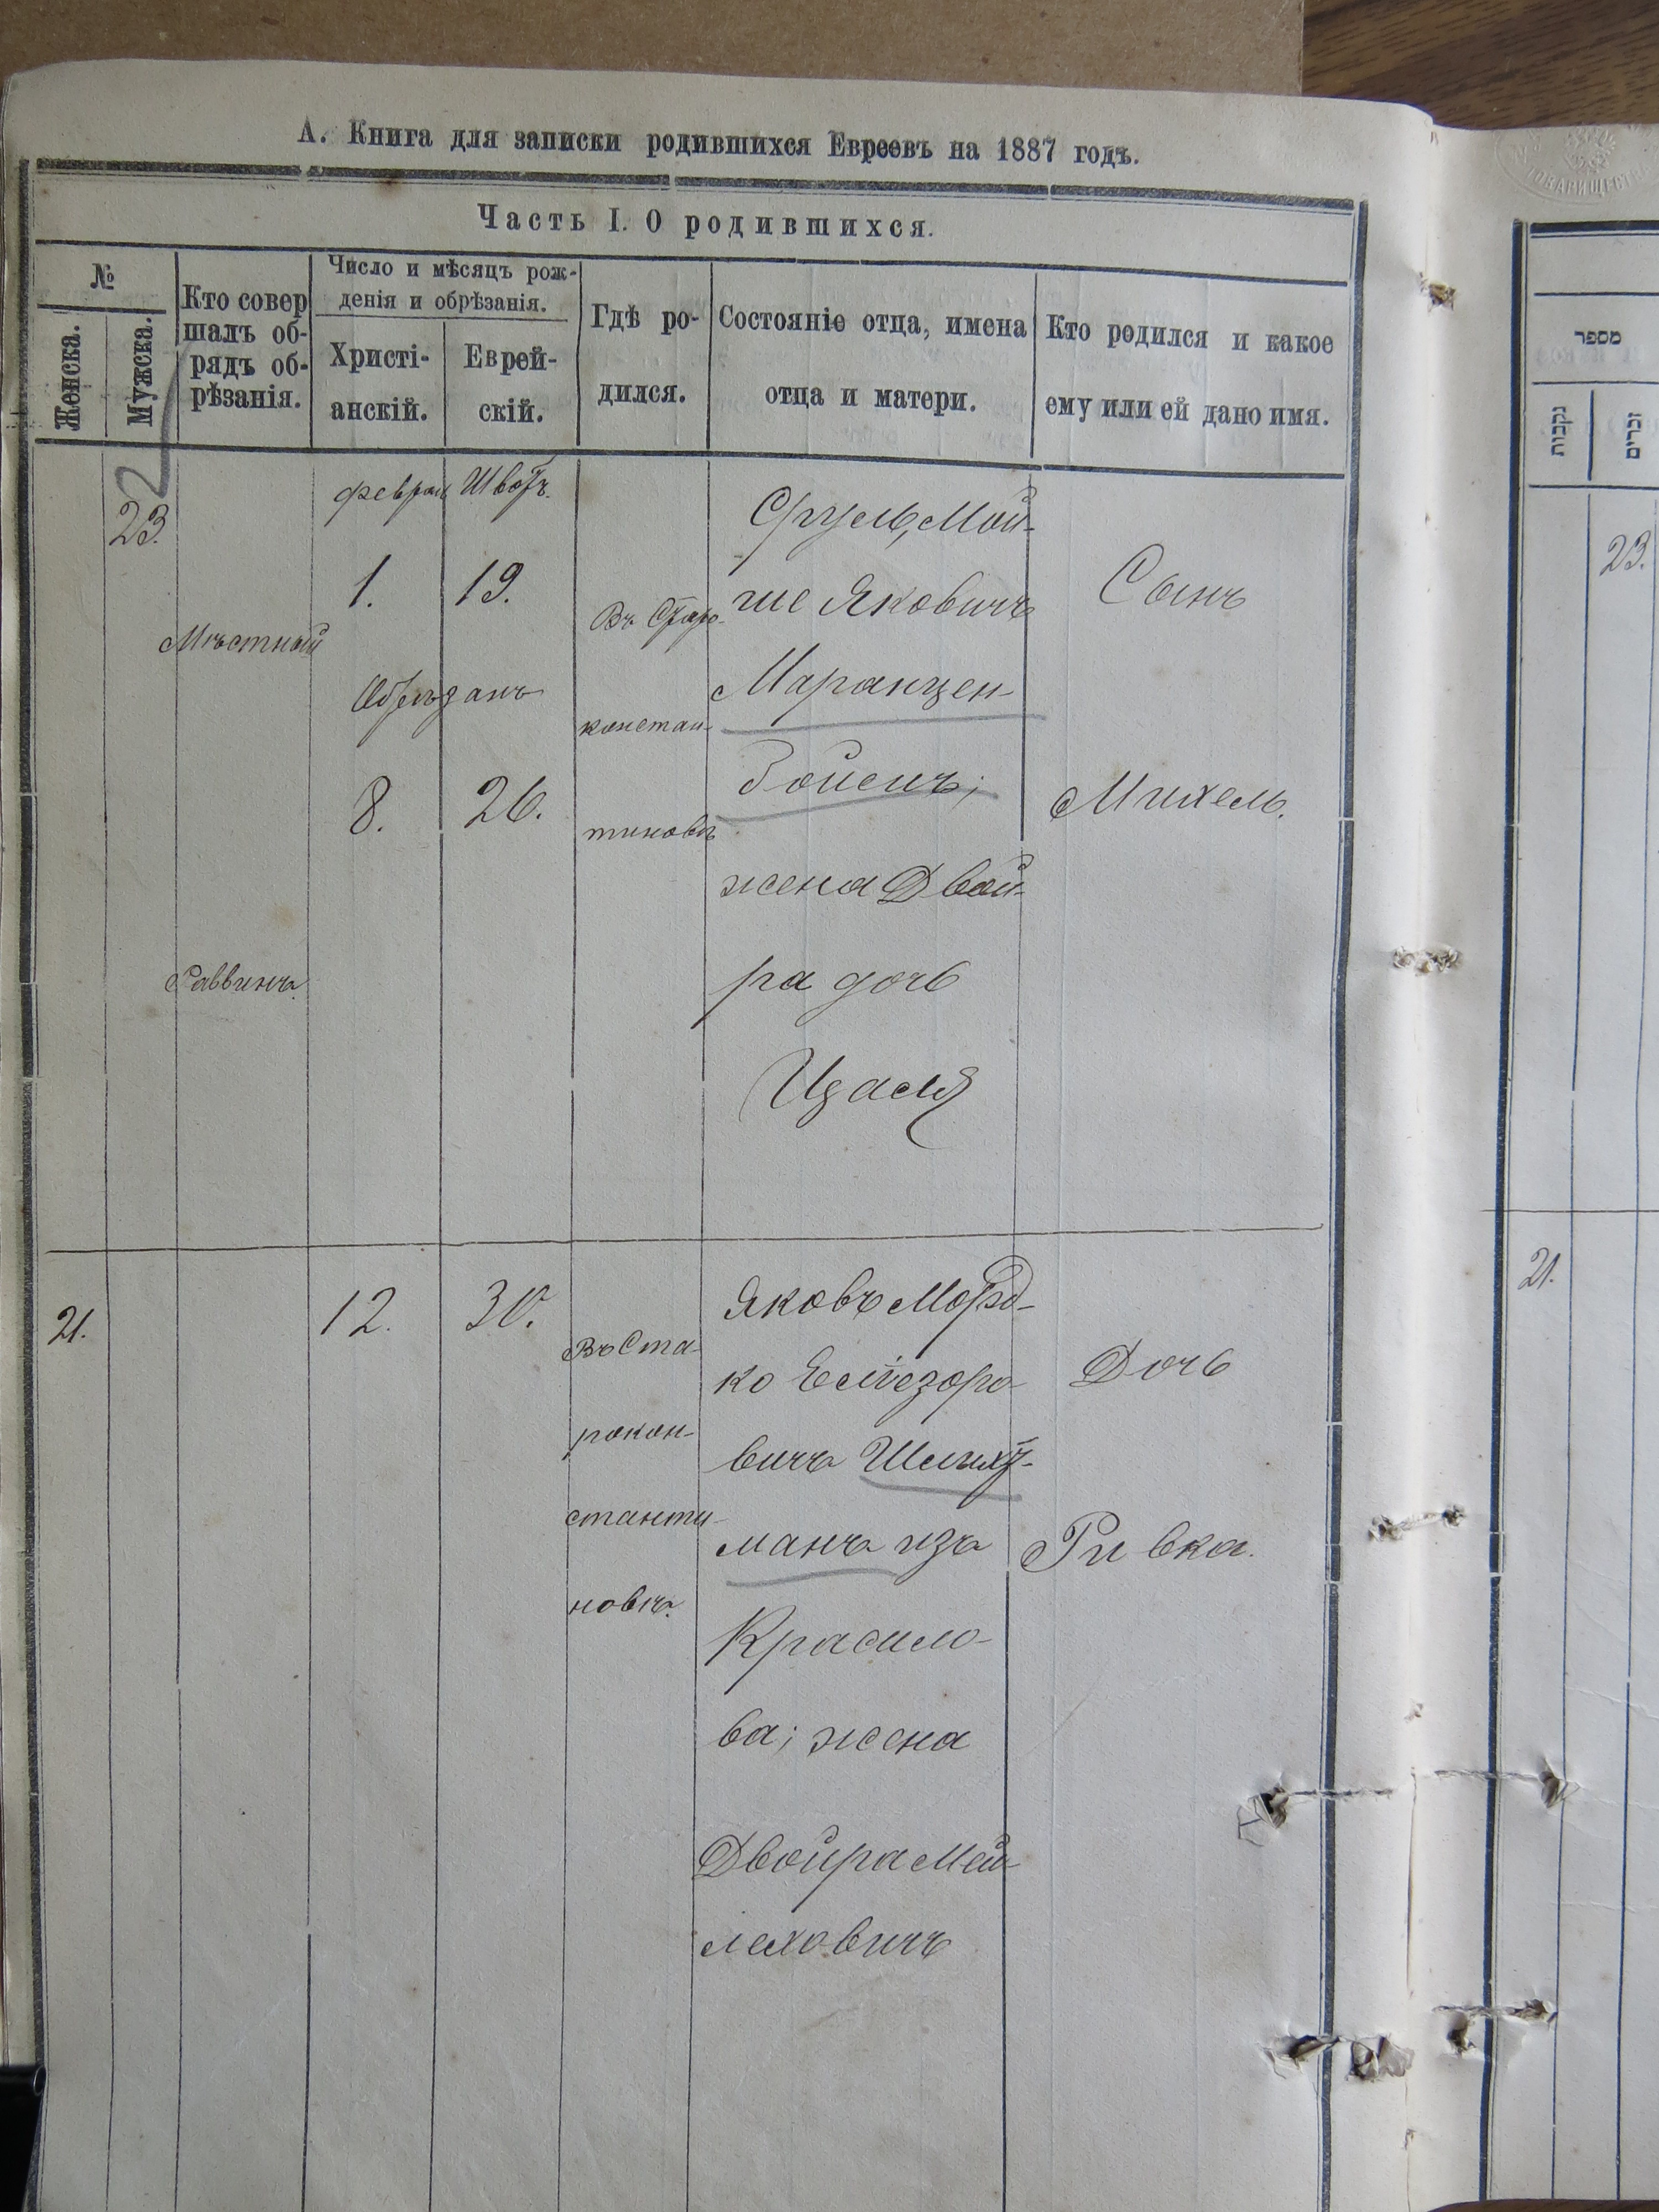 А. Книга для записки родившихся Евреевъ на 1887 годъ.
Часть I. О родившихся.
№
Женска.
Мужска.
Кто совер
шалъ об-
рядъ об-
рѣзанія.
Число и мѣсяцъ рож-
денія и обрѣзанія.
Христі-
анскій.
Еврей-
скій.
Гдѣ ро-
дился.
Состояніе отца, имена
отца и матери.
Кто родился и какое
ему или ей дано имя.
2
23.
Мѣстный
Раввинъ.
феврал Шватъ.
1. 19.
Обрѣзанъ
8. 26.
Въ Старо-
констан-
тиновѣ
Сруль, Мой-
ше Яковичъ
Маранцен-
бойенъ;
жена Двой-
ра дочь
Ицася
Сынъ
Михель.
21.
12. 30.
Въ Ста-
рокон-
станти-
новѣ.
Яковъ Морд-
ко Еліезоро-
вичъ
манъ изъ
Красило-
ва; жена
Двойра Мей-
леховичъ
Дочь
Ривка.
ТОВАРИЩЕСТВ
מספר
נקבות
זכרים
23.
21.